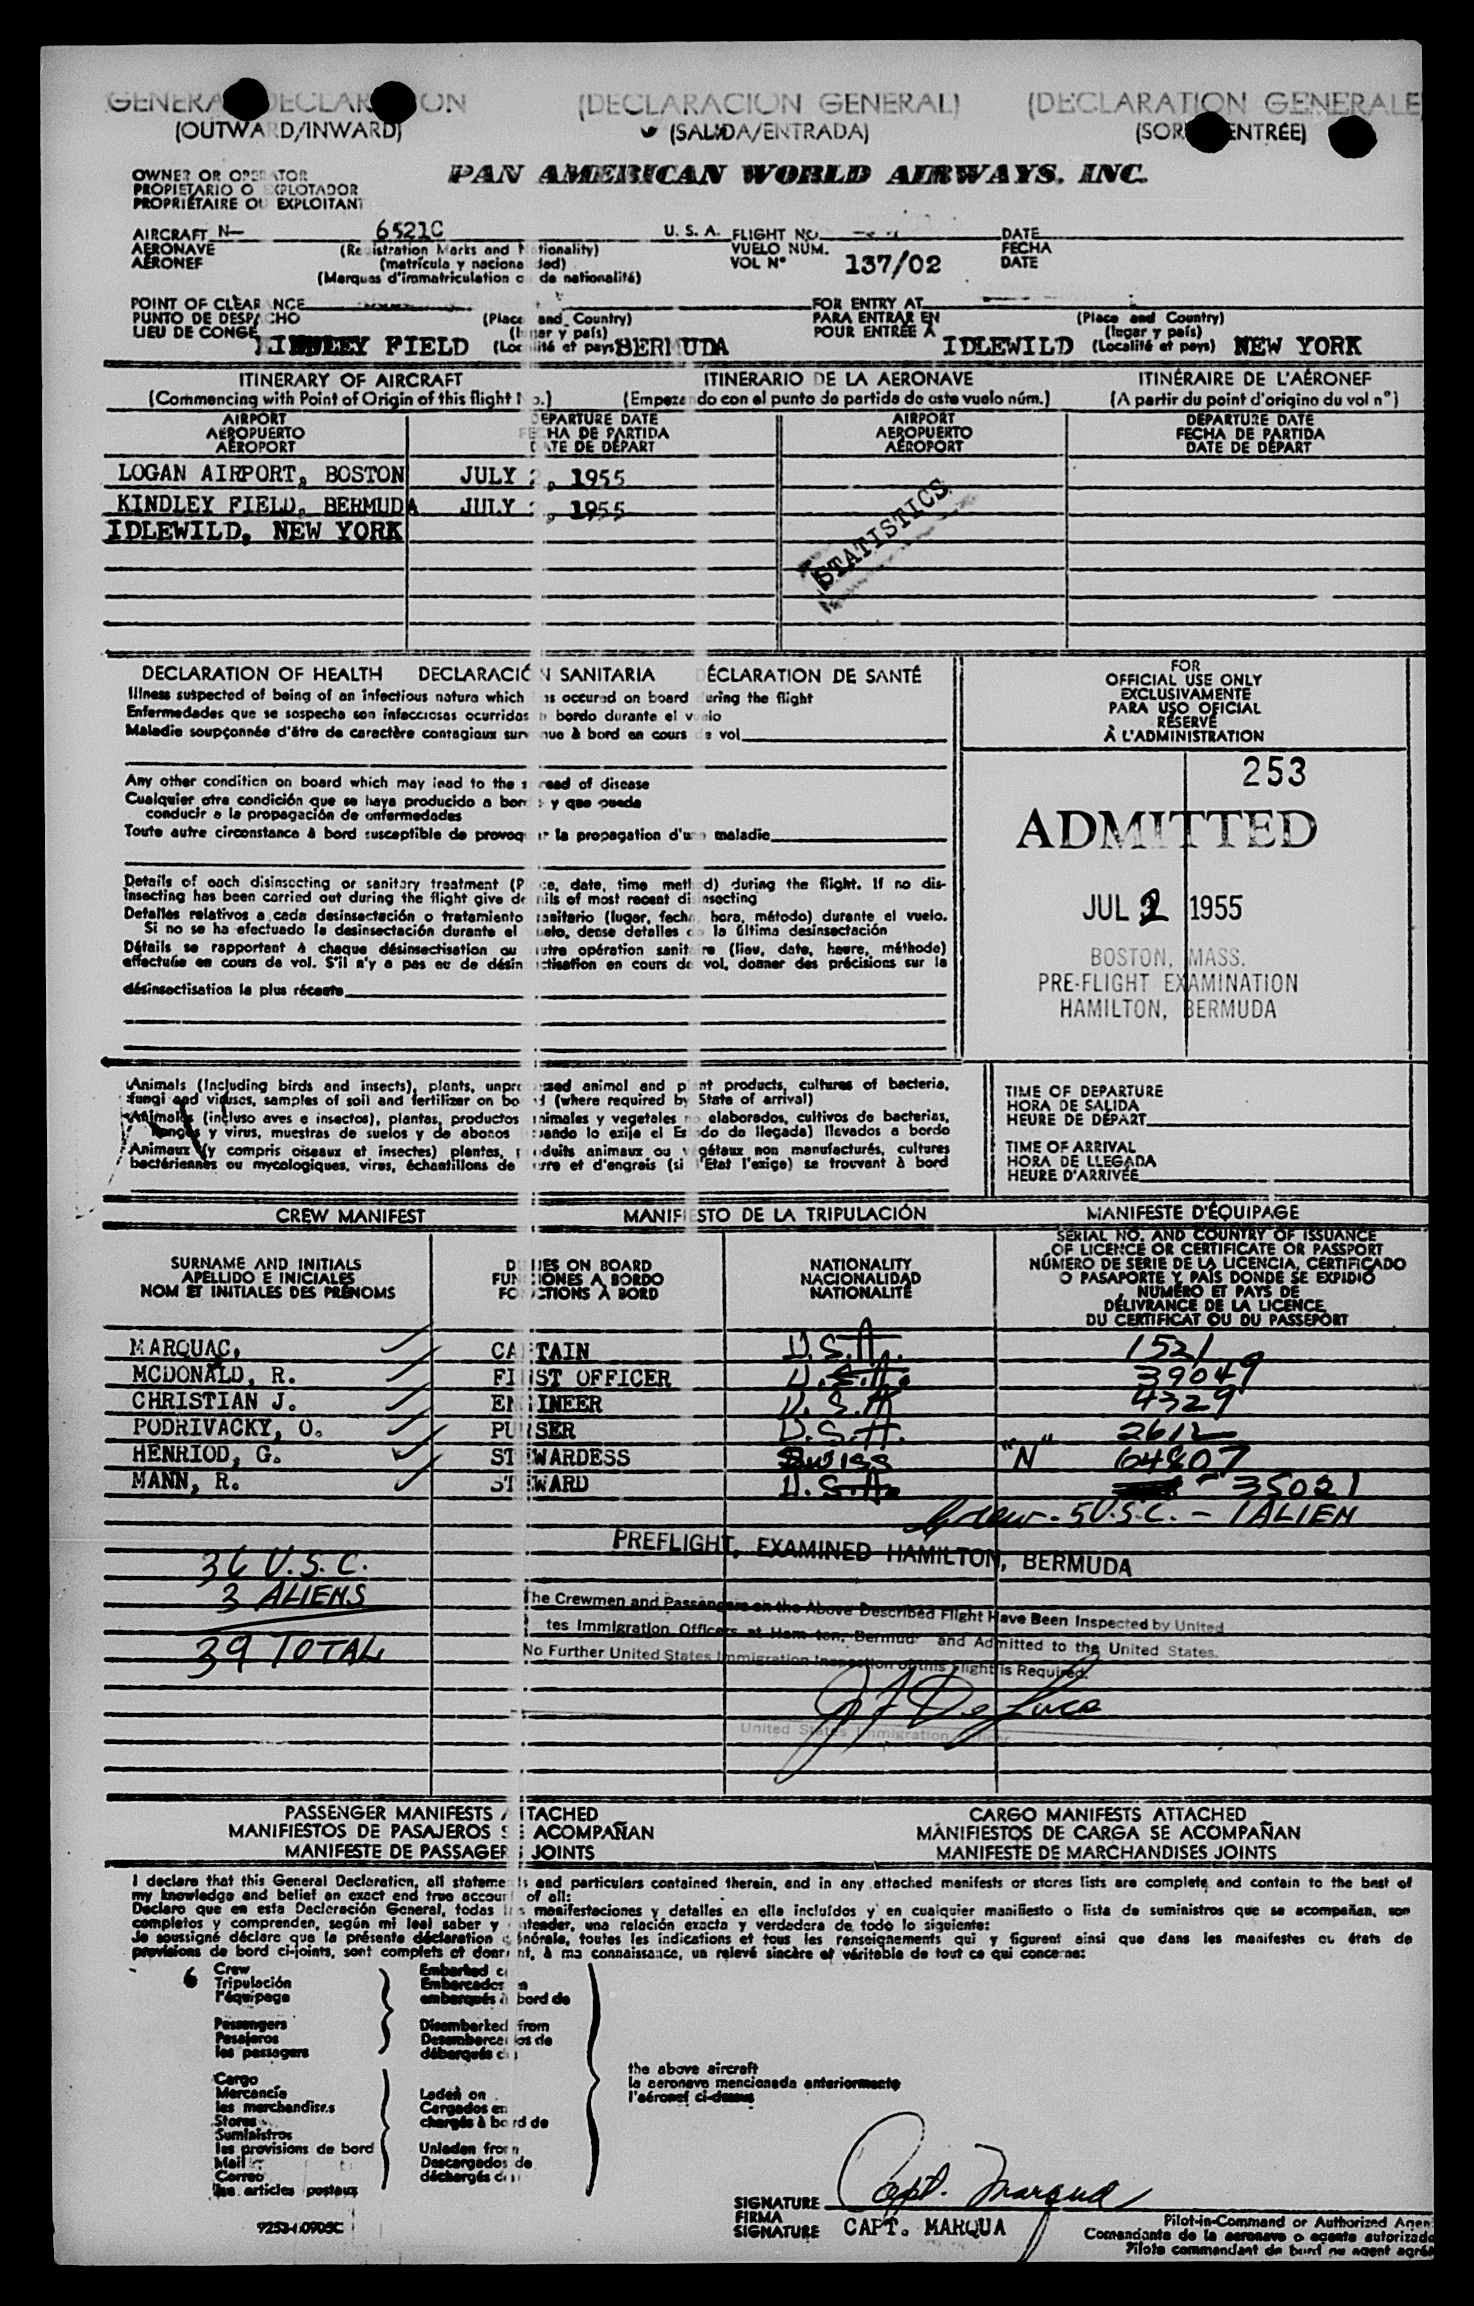 GENERAL DECLARATION (DECLARACION GENERAL) (DECLARATION GENERALE
(OUTWARD/INWARD) (SALIDA/ENTRADA) (SORTIE/ENTRÉE)
OWNER OR OPERATOR
PROPIETARIO O EXPLOTADOR
PROPRIÉTAIRE OU EXPLOITANT
PAN AMERICAN WORLD AIRWAYS, INC.
AIRCRAFT N— 6521C U. S. A. FLIGHT NO. DATE
AERONAVE (Registration Marks and Nationality) VUELO NÚM. FECHA
AÉRONEF (matrícula y nacionalidad) VOL N° 137/02 DATE
(Marques d'immatriculation et de nationalité)
POINT OF CLEARANCE FOR ENTRY AT
PUNTO DE DESPACHO (Place and Country) PARA ENTRAR EN (Place and Country)
LIEU DE CONGÉ (lugar y país) POUR ENTRÉE A (lugar y país)
KINDLEY FIELD (Localité et pays) BERMUDA IDLEWILD (Localité et pays) NEW YORK
ITINERARY OF AIRCRAFT ITINERARIO DE LA AERONAVE ITINÉRAIRE DE L'AÉRONEF
(Commencing with Point of Origin of this flight No.) (Empezando con el punto de partida de este vuelo núm.) (A partir du point d'origine du vol n°)
AIRPORT DEPARTURE DATE AIRPORT DEPARTURE DATE
AEROPUERTO FECHA DE PARTIDA AEROPUERTO FECHA DE PARTIDA
AÉROPORT DATE DE DÉPART AÉROPORT DATE DE DÉPART
LOGAN AIRPORT, BOSTON JULY 2, 1955
KINDLEY FIELD, BERMUDA JULY 2, 1955
IDLEWILD, NEW YORK
STATISTICS
DECLARATION OF HEALTH DECLARACIÓN SANITARIA DÉCLARATION DE SANTÉ
Illness suspected of being of an infectious nature which has occured on board during the flight
Enfermedades que se sospecha son infecciosas ocurridas a bordo durante el vuelo
Maladie soupçonnée d'être de caractère contagieux survenue à bord en cours de vol
Any other condition on board which may lead to the spread of disease
Cualquier otra condición que se haya producido a bordo y que pueda
conducir a la propagación de enfermedades
Toute autre circonstance à bord susceptible de provoquer la propagation d'une maladie
Details of each disinsecting or sanitary treatment (Place, date, time method) during the flight. If no dis-
insecting has been carried out during the flight give details of most recent disinsecting
Detalles relativos a cada desinsectación o tratamiento sanitario (lugar, fecha, hora, método) durante el vuelo.
Si no se ha efectuado la desinsectación durante el vuelo, dense detalles de la última desinsectación
Détails se rapportant à chaque désinsectisation ou autre opération sanitaire (lieu, date, heure, méthode)
effectuée en cours de vol. S'il n'y a pas eu de désinsectisation en cours de vol, donner des précisions sur la
désinsectisation la plus récente
FOR
OFFICIAL USE ONLY
EXCLUSIVAMENTE
PARA USO OFICIAL
RÉSERVÉ
À L'ADMINISTRATION
253
ADMITTED
JUL 2 1955
BOSTON, MASS.
PRE-FLIGHT EXAMINATION
HAMILTON, BERMUDA
Animals (Including birds and insects), plants, unprocessed animal and plant products, cultures of bacteria,
fungi and viruses, samples of soil and fertilizer on board (where required by State of arrival)
Animales (incluso aves e insectos), plantas, productos animales y vegetales no elaborados, cultivos de bacterias,
hongos y virus, muestras de suelos y de abonos (cuando lo exija el Estado de llegada) llevados a bordo
Animaux (y compris oiseaux et insectes) plantes, produits animaux ou végétaux non manufacturés, cultures
bactériennes ou mycologiques, virus, échantillons de terre et d'engrais (si l'Etat l'exige) se trouvant à bord
TIME OF DEPARTURE
HORA DE SALIDA
HEURE DE DÉPART
TIME OF ARRIVAL
HORA DE LLEGADA
HEURE D'ARRIVÉE
CREW MANIFEST MANIFIESTO DE LA TRIPULACIÓN MANIFESTE D'ÉQUIPAGE
SURNAME AND INITIALS
APELLIDO E INICIALES
NOM ET INITIALES DES PRÉNOMS
DUTIES ON BOARD
FUNCIONES A BORDO
FONCTIONS À BORD
NATIONALITY
NACIONALIDAD
NATIONALITÉ
SERIAL NO. AND COUNTRY OF ISSUANCE
OF LICENCE OR CERTIFICATE OR PASSPORT
NÚMERO DE SERIE DE LA LICENCIA, CERTIFICADO
O PASAPORTE Y PAÍS DONDE SE EXPIDIÓ
NUMÉRO ET PAYS DE
DÉLIVRANCE DE LA LICENCE,
DU CERTIFICAT OU DU PASSEPORT
MARQUAC, CAPTAIN U.S.A. 1521
MCDONALD, R. FIRST OFFICER U.S.A. 39049
CHRISTIAN J. ENGINEER U.S.A 4329
PODRIVACKY, O. PURSER U.S.A. 2612
HENRIOD, G. STEWARDESS Swiss "N" 64807
MANN, R. STEWARD U.S.A. - 35021
Crew - 5 U.S.C. - 1 ALIEN
PREFLIGHT, EXAMINED HAMILTON, BERMUDA
36 U.S.C.
3 ALIENS
39 TOTAL
The Crewmen and Passengers on the Above Described Flight Have Been Inspected by United
States Immigration Officers at Hamilton, Bermuda and Admitted to the United States.
No Further United States Immigration Inspection of this Flight is Required.
J F De Luca
United States Immigration Officer
PASSENGER MANIFESTS ATTACHED CARGO MANIFESTS ATTACHED
MANIFIESTOS DE PASAJEROS SE ACOMPAÑAN MANIFIESTOS DE CARGA SE ACOMPAÑAN
MANIFESTE DE PASSAGERS JOINTS MANIFESTE DE MARCHANDISES JOINTS
I declare that this General Declaration, all statements and particulars contained therein, and in any attached manifests or stores lists are complete and contain to the best of
my knowledge and belief an exact end true account of all:
Declaro que en esta Declaración General, todas las manifestaciones y detalles en ella incluídos y en cualquier manifiesto o lista de suministros que se acompañan, son
completos y comprenden, según mi leal saber y entender, una relación exacta y verdadera de todo lo siguiente:
Je soussigné déclare que la présente déclaration générale, toutes les indications et tous les renseignements qui y figurent ainsi que dans les manifestes ou états de
provisions de bord ci-joints, sont complets et donnent, à ma connaissance, un relevé sincère et véritable de tout ce qui concerne:
6 Crew Embarked on
Tripulación Embarcados en
l'équipage embarqués à bord de
Passengers Disembarked from
Pasajeros Desembarcados de
les passagers débarqués de
the above aircraft
la aeronave mencionada anteriormente
l'aéronef ci-dessus
Cargo
Mercancía Laden on
les marchandises Cargados en
Stores chargés à bord de
Suministros
les provisions de bord Unladen from
Mail Descargados de
Correo déchargés de
les articles postaux
9253-1:0905C
SIGNATURE Capt. Marqua
FIRMA
SIGNATURE CAPT. MARQUA
Pilot-in-Command or Authorized Agen
Comandante de la aeronave o agente autorizado
Pilote commandant de bord ou agent agréé